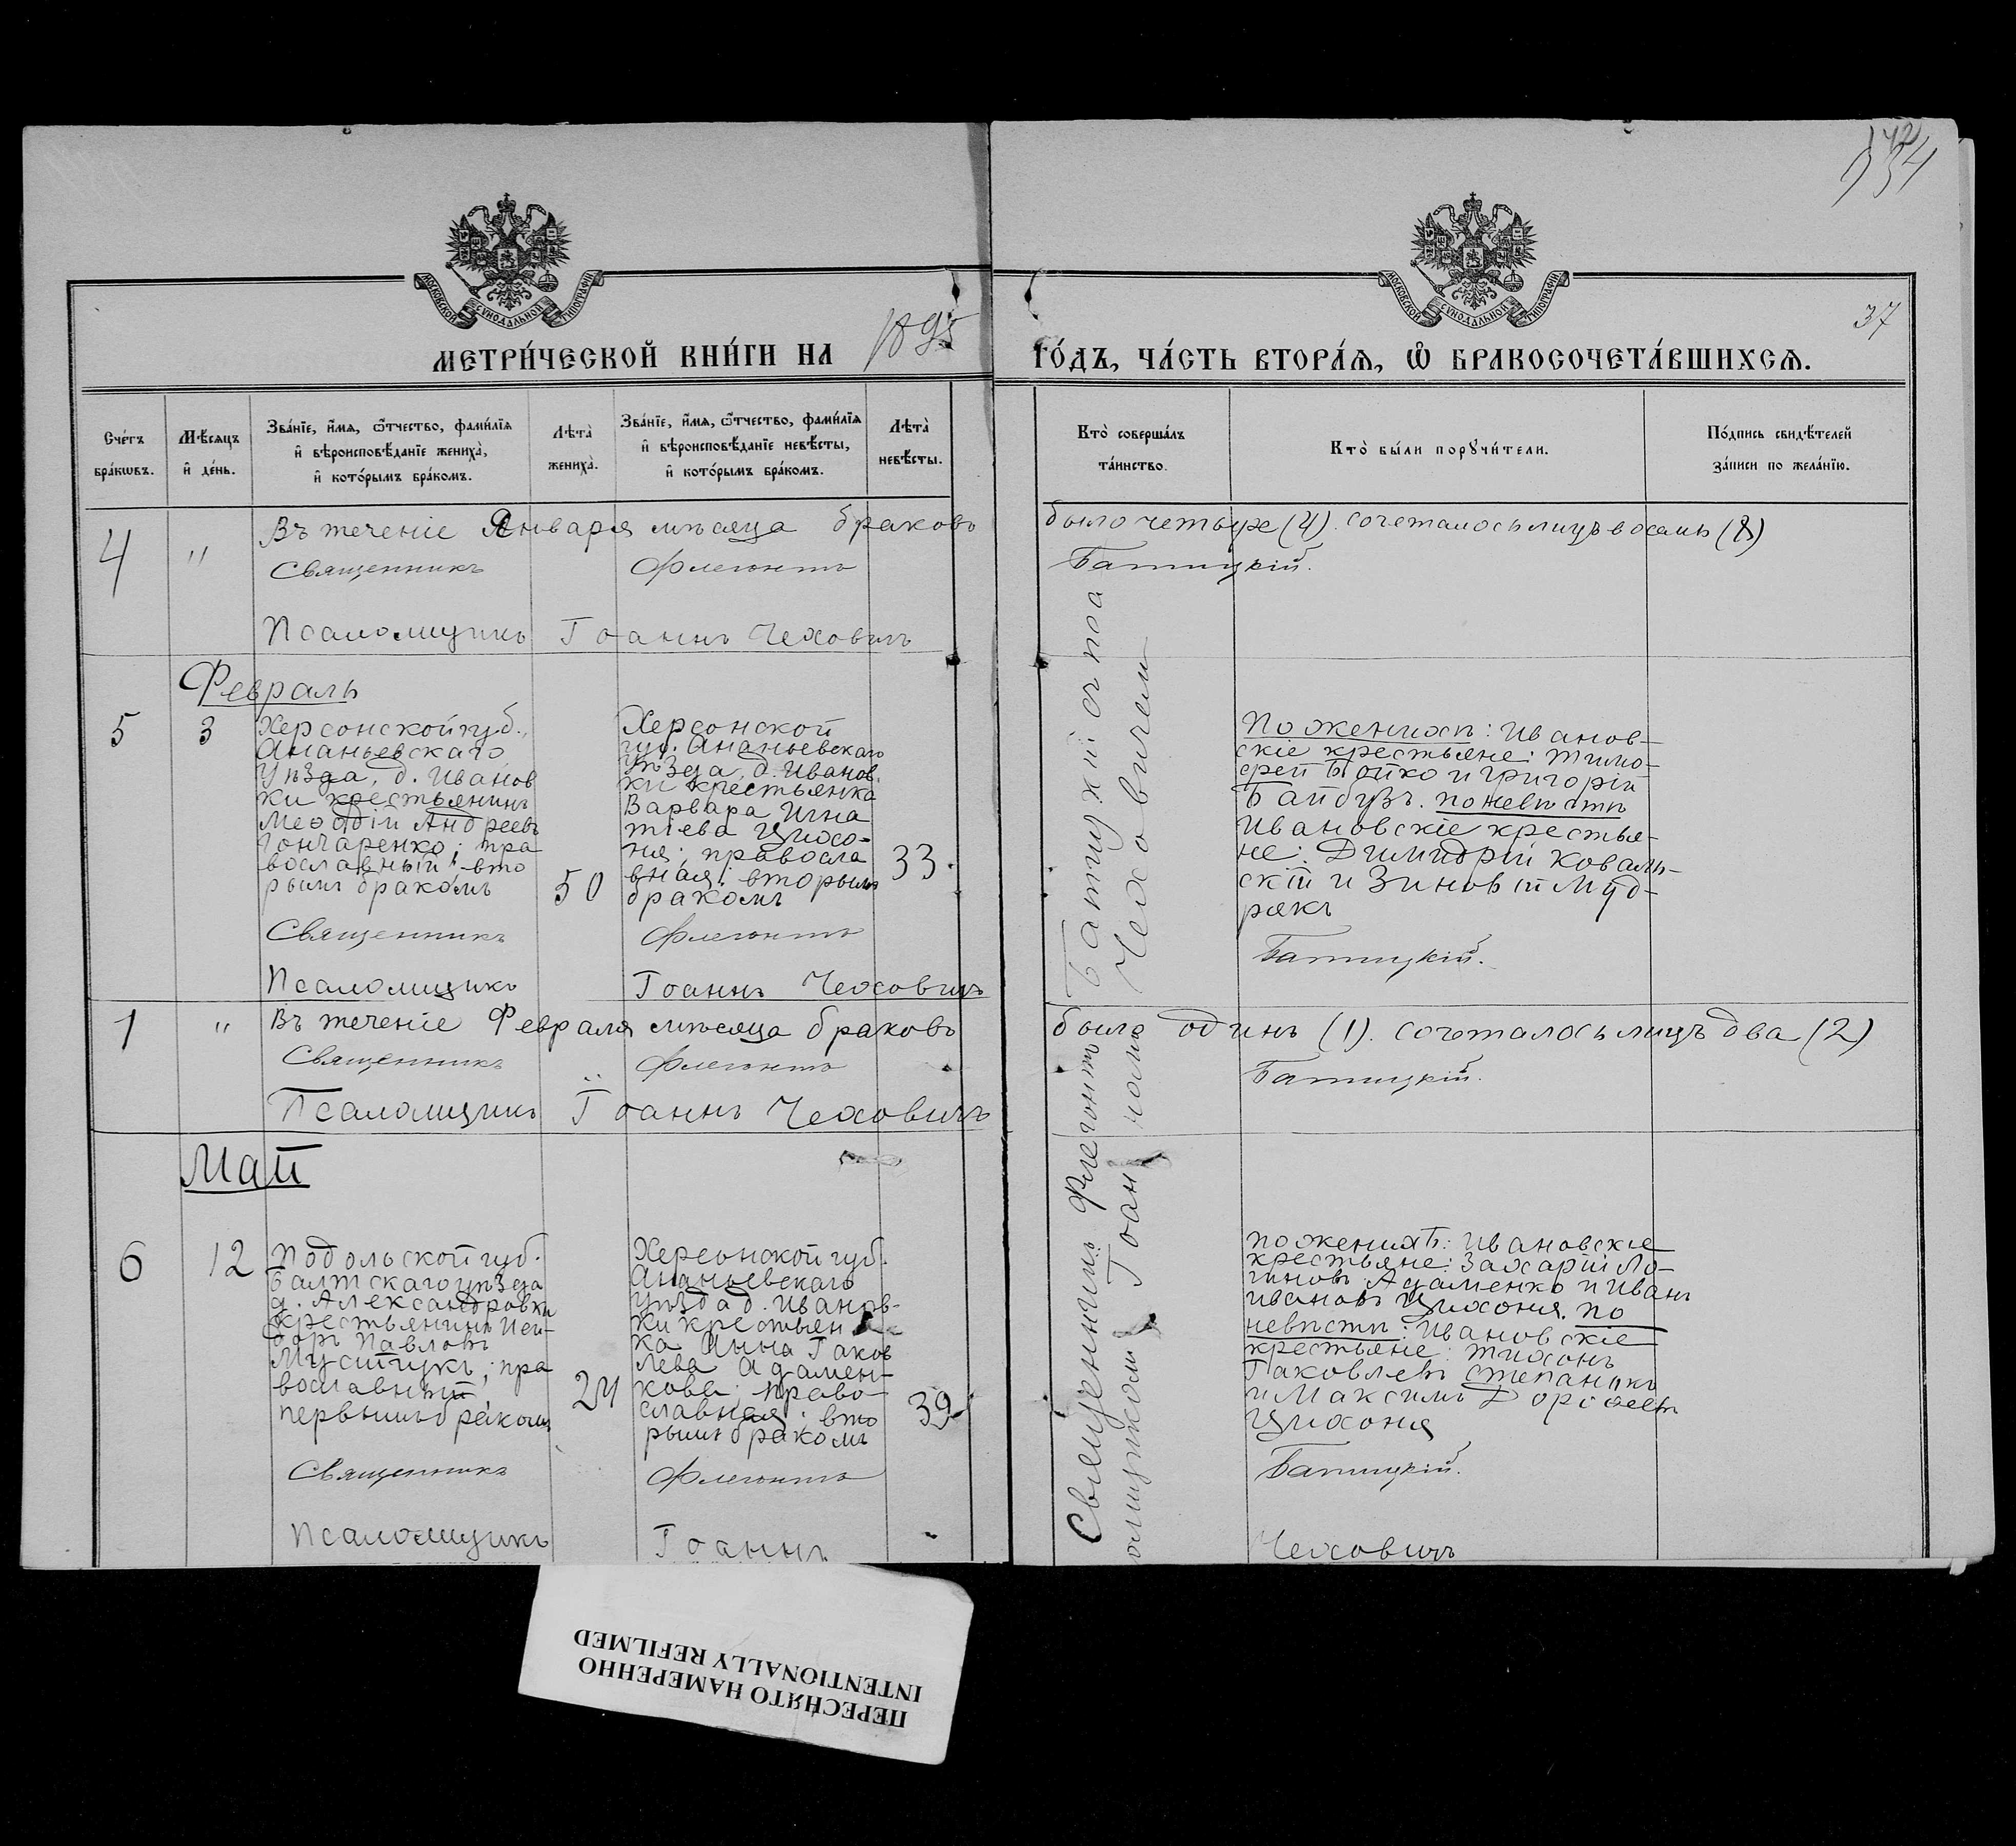 134
37
МОСКОВСКОЙ СѴНОДАЛЬНОЙ ТИПОГРАФІИ
МОСКОВСКОЙ СѴНОДАЛЬНОЙ ТИПОГРАФІИ
МЕТРИ́ЧЕСКОЙ КНИ́ГИ НА 1895 ГО́ДЪ, ЧА́СТЬ ВТОРА́Ѧ, Ѽ БРАКОСОЧЕТА́ВШИХСѦ.
Сче́тъ бра́кѡвъ.
Мѣ́сѧцъ и҆ де́нь.
Зва́нїе, и҆́мѧ, ѻ҆́тчество, фами́лїѧ
и҆ вѣроисповѣ́данїе жениха̀,
и҆ кото́рымъ бра́комъ.
Лѣта̀ жениха̀.
Зва́нїе, и҆́мѧ, ѻ҆́тчество, фами́лїѧ
и҆ вѣроисповѣ́данїе невѣ́сты,
и҆ кото́рымъ бра́комъ.
Лѣта̀ невѣ́сты.
Кто̀ соверша́лъ та́инство.
Кто̀ бы́ли порꙋчи́тели.
По́дпись свидѣ́телей за́писи по жела́нїю.
4 " Въ теченіе Января мѣсяца браковъ было четыре (4). сочеталось лицъ восемь (8)
Священникъ Флегонтъ Батицкій.
Псаломщикъ Іоаннъ Чеховичъ
Февраль
5 3
Херсонской губ.,
Ананьевскаго
уѣзда, д. Иванов
ки крестьянинъ
Меѳодій Андреевъ
Гончаренко; пра
вославный; вто
рымъ бракомъ
50
Херсонской
губ. Ананьевскаго
уѣзда, д. Иванов
ки крестьянка
Варвара Игна
тіева Цихо-
ня; правосла
вная; вторымъ
бракомъ
33.
По женихѣ: Иванов-
скіе крестьяне: Тимо-
фей Бойко и Григорій
Байбузъ. по невѣстѣ
Ивановскіе крестья-
не: Димитрій Коваль-
скій и Зиновій Муд-
рякъ
Священникъ Флегонтъ Батицкій.
Псаломщикъ Іоаннъ Чеховичъ
1 " Въ теченіе Февраля мѣсяца браковъ было одинъ (1). сочеталось лицъ два (2)
Священникъ Флегонтъ Батицкій.
Псаломщикъ Іоаннъ Чеховичъ
Май
6 12
Подольской губ.
Балтскаго уѣзда
д. Александровки
крестьянинъ Иси-
доръ Павловъ
пра
вославный;
первымъ бракомъ
24
Херсонской губ.
Ананьевскаго
уѣзда д. Иванов-
ки крестьян
ка Анна Іаков
лева Адамен-
кова; право-
славная; вто
рымъ бракомъ
39
по женихѣ: Ивановскіе
крестьяне: Захарій Ло-
гиновъ Адаменко и Иванъ
Ивановъ Цихоня. по
невѣстѣ: Ивановскіе
крестьяне: Тихонъ
Іаковлевъ Степанюкъ
и Максимъ
Цихоня
Священникъ Флегонтъ Батицкій.
Псаломщикъ Іоаннъ Чеховичъ
Священникъ Флегонтъ Батицкій съ пса
ломщикомъ Іоанномъ Чеховичемъ
ПЕРЕСНЯТО НАМЕРЕННО
INTENTIONALLY REFILMED